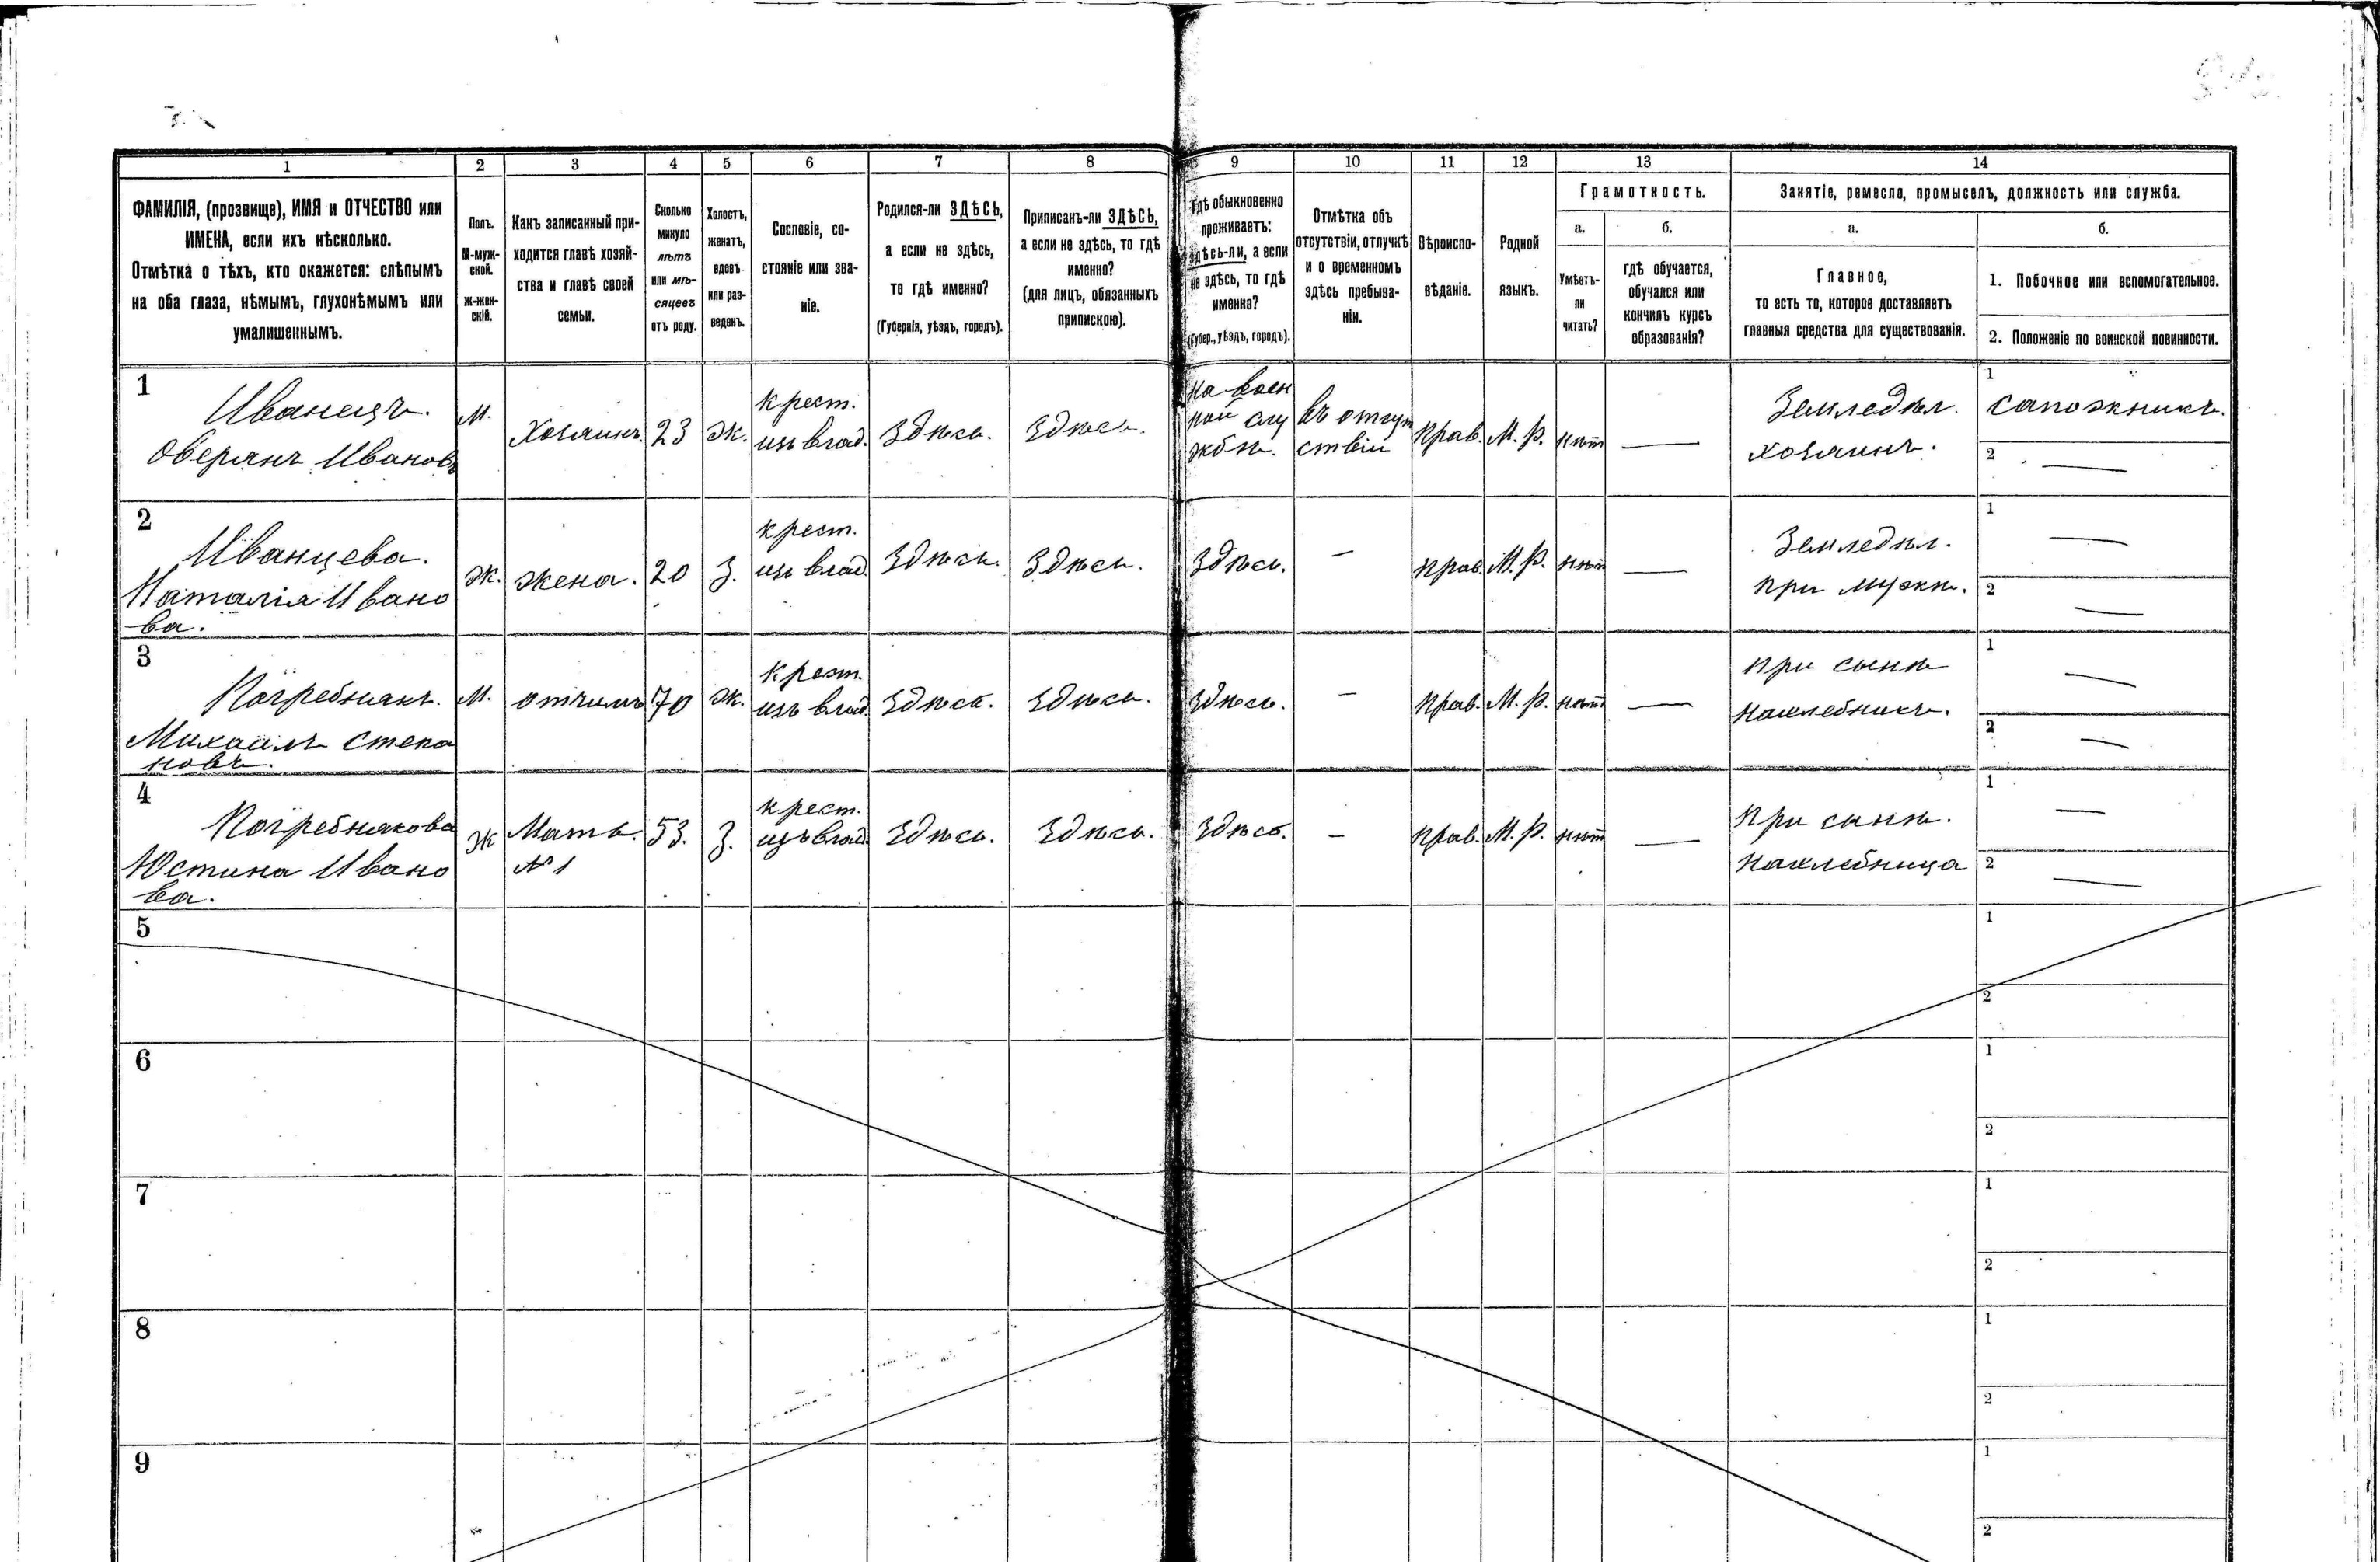 1
2
3
4
5
6
7
8
9
10
11
12
13
14
ФАМИЛІЯ, (прозвище), ИМЯ и ОТЧЕСТВО или
ИМЕНА, если ихъ нѣсколько.
Отмѣтка о тѣхъ, кто окажется: слѣпымъ
на оба глаза, нѣмымъ, глухонѣмымъ или
умалишеннымъ.
Полъ.
М-муж-
ской.
ж-жен-
скій.
Какъ записанный при-
ходится главѣ хозяй-
ства и главѣ своей
семьи.
Сколько
минуло
лѣтъ
или мѣ-
сяцевъ
отъ роду.
Холостъ,
женатъ,
вдовъ
или раз-
веденъ.
Сословіе, со-
стояніе или зва-
ніе.
Родился-ли ЗДѢСЬ,
а если не здѣсь,
то гдѣ именно?
(Губернія, уѣздъ, городъ).
Приписанъ-ли ЗДѢСЬ,
а если не здѣсь, то гдѣ
именно?
(для лицъ, обязанныхъ
припискою).
Гдѣ обыкновенно
проживаетъ:
здѣсь-ли, а если
не здѣсь, то гдѣ
именно?
(Губер., уѣздъ, городъ).
Отмѣтка объ
отсутствіи, отлучкѣ
и о временномъ
здѣсь пребыва-
ніи.
Вѣроиспо-
вѣданіе.
Родной
языкъ.
Грамотность.
а.
Умѣетъ-
ли
читать?
б.
гдѣ обучается,
обучался или
кончилъ курсъ
образованія?
Занятіе, ремесло, промыселъ, должность или служба.
а.
Главное,
то есть то, которое доставляетъ
главныя средства для существованія.
б.
1. Побочное или вспомогательное.
2. Положеніе по воинской повинности.
1
Иванецъ.
Оверянъ Ивановъ
М.
Хозяинъ
23
Ж.
крест.
изъ влад.
Здѣсь.
Здѣсь.
На воен
ной слу
жбѣ.
въ отсут
ствіи
прав.
М. Р.
нѣт
—
Земледѣл.
хозяинъ.
1
сапожникъ.
2
—
2
Иванцева.
Наталія Ивано
ва.
Ж.
жена.
20
З.
крест.
изъ влад.
Здѣсь.
Здѣсь.
Здѣсь.
—
прав.
М. Р.
нѣт
—
Земледѣл.
при мужѣ.
1
—
2
—
3
Погребнякъ.
Михаилъ Степа
новъ.
М.
отчимъ
70
Ж.
крест.
изъ влад.
Здѣсь.
Здѣсь.
Здѣсь.
—
прав.
М. Р.
нѣт
—
при сынѣ
нахлебникъ.
1
—
2
—
4
Погребнякова
Юстина Ивано
ва.
Ж
Мать.
№ 1
53.
З.
крест.
изъ влад.
Здѣсь.
Здѣсь.
Здѣсь.
—
прав.
М. Р.
нѣт
—
при сынѣ.
нахлебница
1
—
2
—
5
1
2
6
1
2
7
1
2
8
1
2
9
1
2